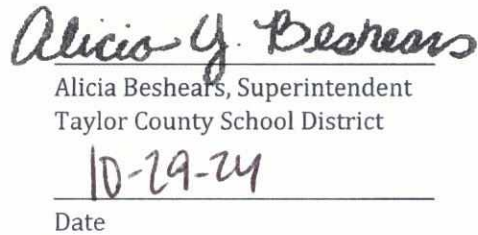 Alicia Y. Beshears
Alicia Beshears, Superintendent
Taylor County School District
10-29-24
Date